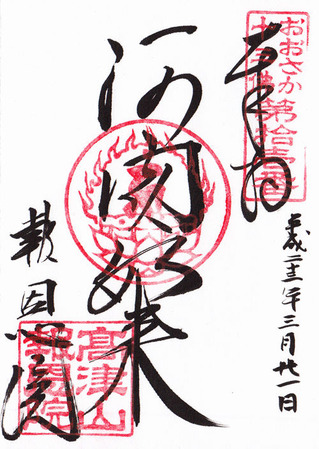 おおさか
十三佛第拾壹番
奉拝
平成二十三年三月廿一日
阿閦如来
報恩院
高津山
報恩院